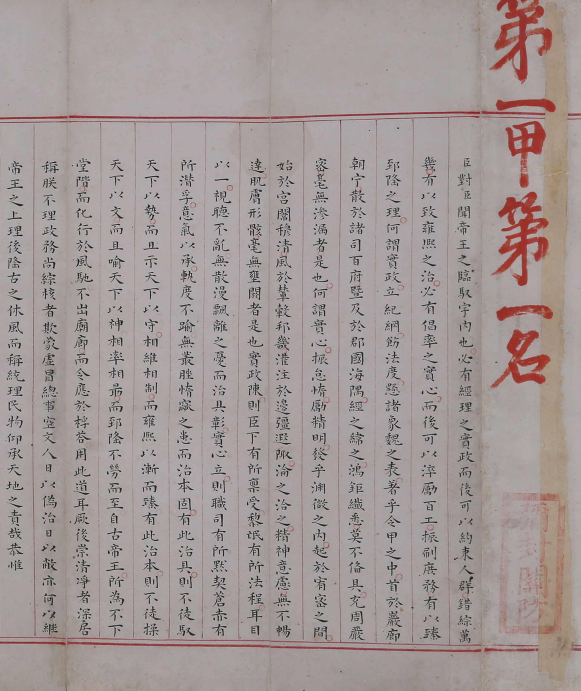 第一甲第一名
臣對臣聞帝王之臨馭宇內也必有經理之實政而後可以約束人群錯綜萬
幾有以致雍熙之治必有倡率之實心而後可以淬勵百工振刷庶務有以臻
郅隆之理何謂實政立紀綱飭法度懸諸象魏之表著乎令甲之中首於巖廊
朝宁散於諸司百府暨及於郡國海隅經之緯之鴻鉅纖悉莫不備具充周嚴
密毫無滲漏者是也何謂實心振怠惰勵精明發乎淵微之內起於宥密之間
始於宮闈穆清風於輦轂邦畿灌注於邊疆遐陬淪之洽之精神意慮無不暢
達肌膚形骸毫無壅閼者是也實政陳則臣下有所稟受黎氓有所法程耳目
以一視聽不亂無散漫飄離之憂而治具彰實心立則職司有所默契蒼赤有
所潛孚意氣以承軌度不踰無叢脞惰窳之患而治本固有此治具則不徒馭
天下以勢而且示天下以守相維相制而雍熙以漸而臻有此治本則不徒操
天下以文而且喻天下以神相率相勗而郅隆不勞而至自古帝王所為不下
堂階而化行於風馳不出廟廊而令應於桴答用此道耳厥後崇清凈者深居
稱朕不理政務尚綜核者欺蒙虛冒總事空文人日以偽治日以敝亦何以繼
帝王之上理後隆古之休風而稱統理民物仰承天地之責哉恭惟
關防